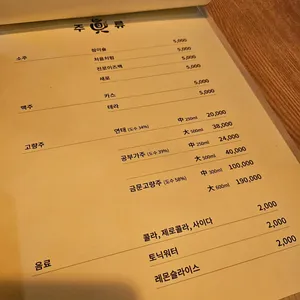 주 眞 類
소주 참이슬 5,000
처음처럼 5,000
진로이즈백 5,000
새로 5,000
맥주 카스 5,000
테라 5,000
고량주 연태 (도수 34%) 中 250ml 20,000
大 500ml 38,000
공부가주 (도수 39%) 中 250ml 24,000
大 500ml 40,000
금문고량주 (도수 58%) 中 300ml 100,000
大 600ml 190,000
음료 콜라, 제로콜라, 사이다 2,000
토닉워터 2,000
레몬슬라이스 2,000